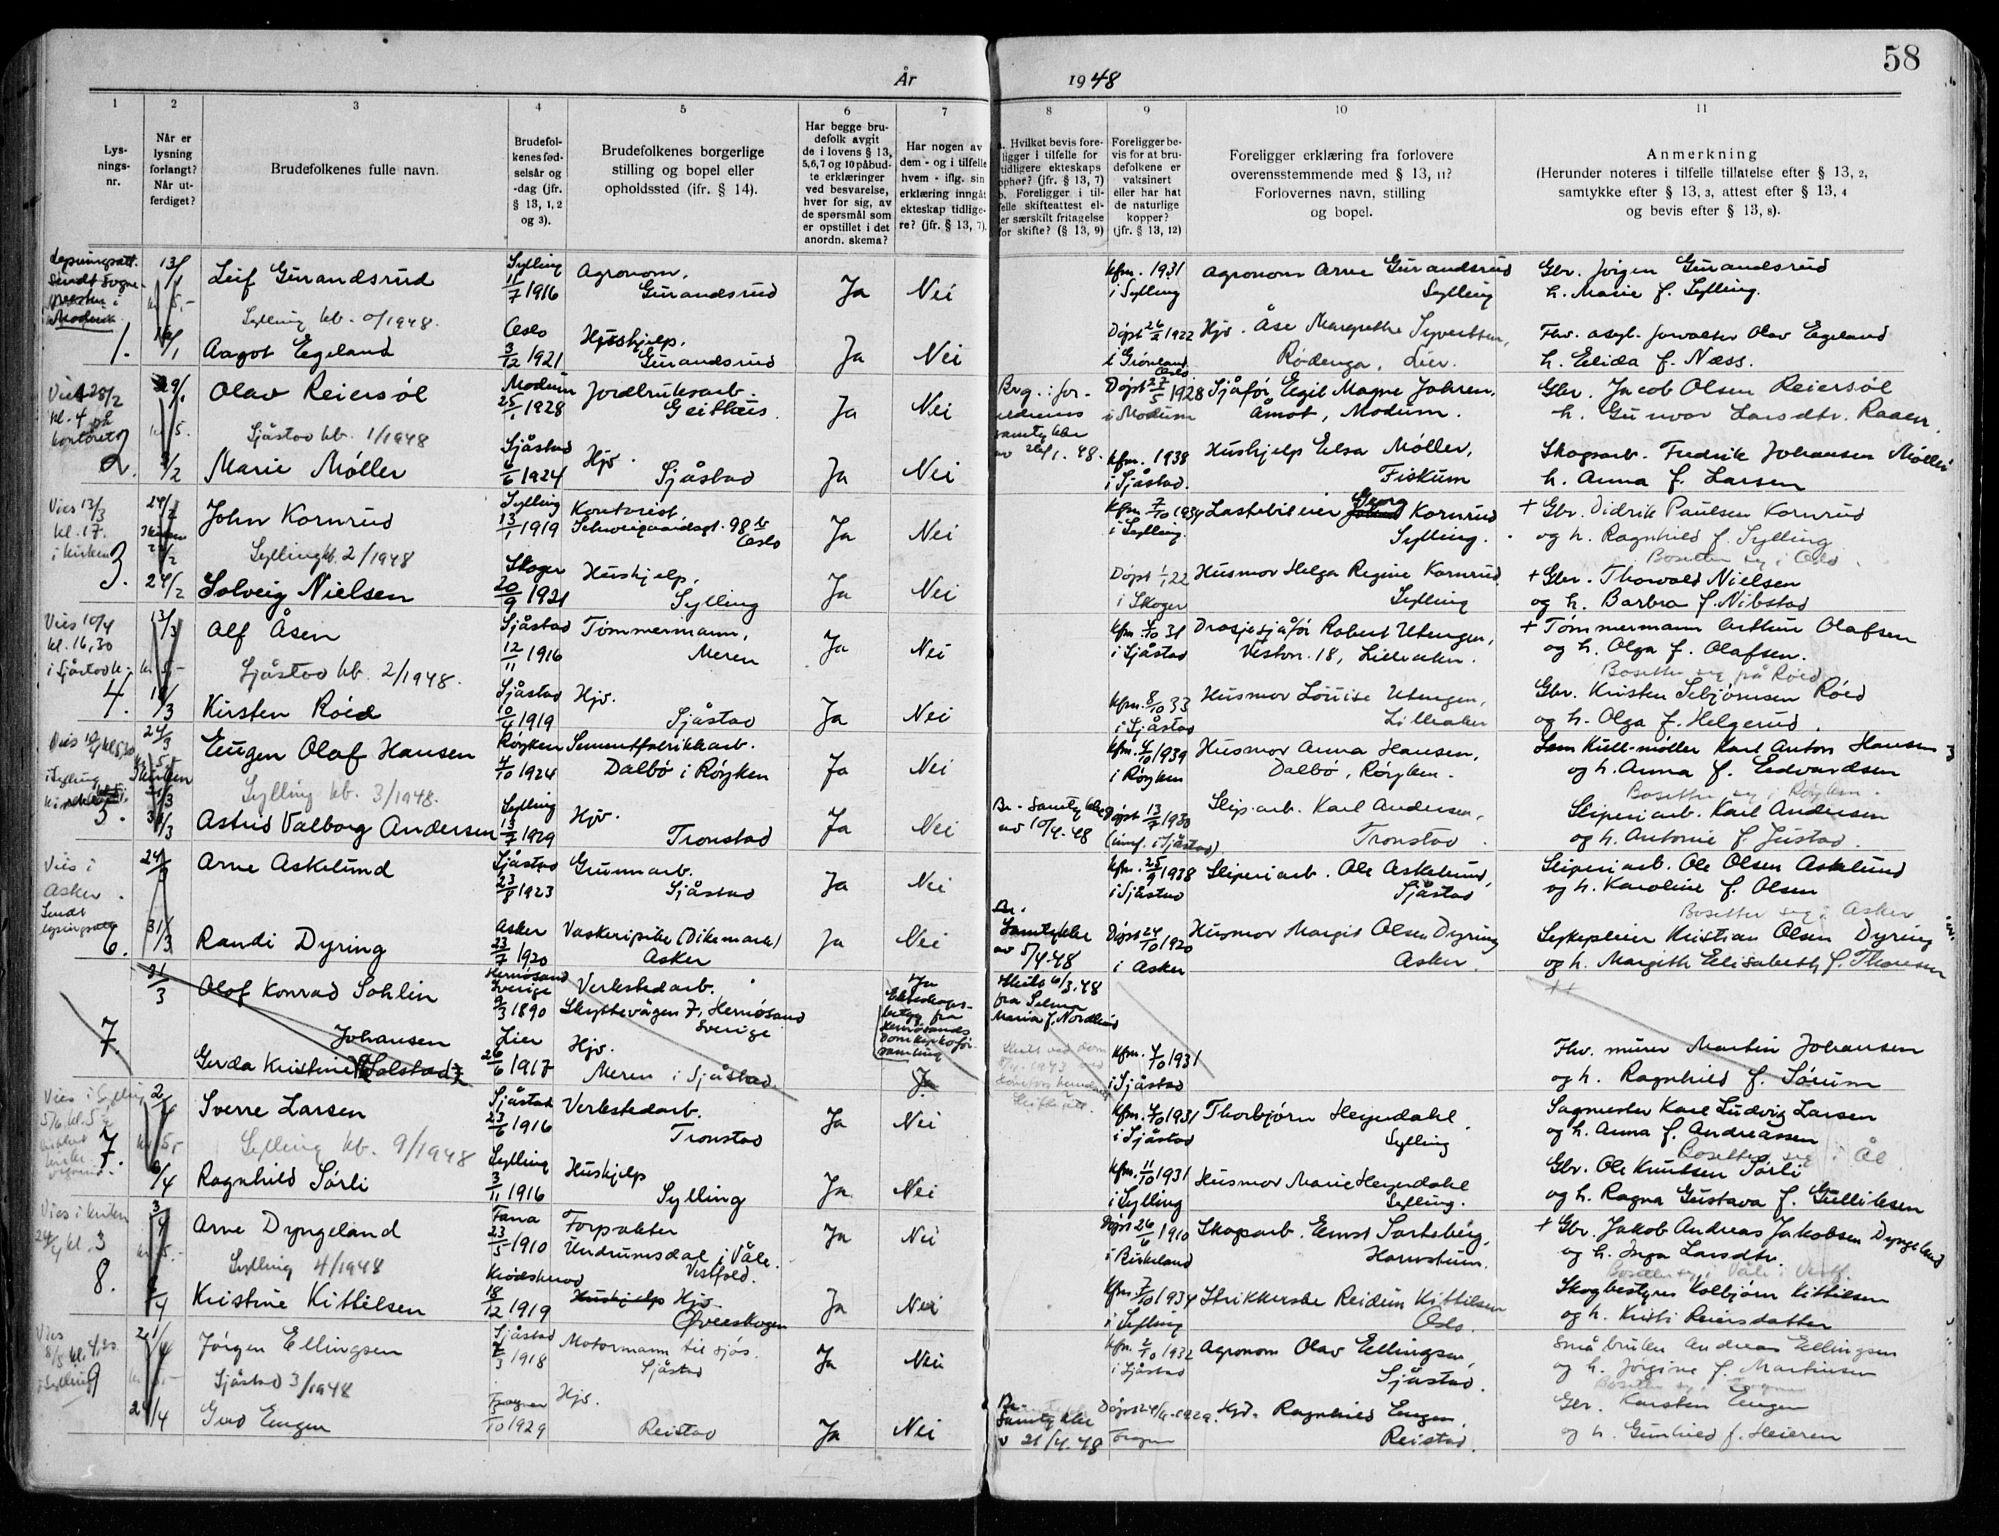 58
År 1948
1 2 3 4 5 6 7 8 9 10 11
Lys-
nings-
nr.
Når er
lysning
forlangt?
Når ut-
ferdiget?
Brudefolkenes fulle navn.
Brudefol-
kenes fød-
selsår og
-dag (jfr.
§ 13, 1, 2
og 3).
Brudefolkenes borgerlige
stilling og bopel eller
opholdssted (jfr. § 14).
Har begge bru-
defolk avgit
de i lovens § 13,
5, 6, 7 og 10 påbud-
te erklæringer
ved besvarelse,
hver for sig, av
de spørsmål som
er opstillet i det
anordn. skema?
Har nogen av
dem - og i tilfelle
hvem - iflg. sin
erklæring inngått
ekteskap tidlige-
re? (jfr. § 13, 7).
Hvilket bevis fore-
ligger i tilfelle for
tidligere ekteskaps
ophør? (jfr. § 13, 7)
b. Foreligger i til-
felle skifteattest el-
ler særskilt fritagelse
for skifte? (§ 13, 9)
Foreligger be-
vis for at bru-
defolkene er
vaksinert
eller har hat
de naturlige
kopper?
(jfr. § 13, 12)
Foreligger erklæring fra forlovere
overensstemmende med § 13, 11?
Forlovernes navn, stilling
og bopel.
Anmerkning
(Herunder noteres i tilfelle tillatelse efter § 13, 2,
samtykke efter § 13, 3, attest efter § 13, 4
og bevis efter § 13, 8).
Lysningsatt.
sendt Sogne-
presten i
Modum
1.
13/1
kr. 5.-
16/1
Leif Gurandsrud
Sylling kb. 0/1948.
Sylling
11/7 1916
Agronom,
Gurandsrud
Ja Nei
Kfm. 1931
i Sylling
Agronom Arne Gurandsrud
Sylling
Gbr. Jørgen Gurandsrud
h. Marie f. Sylling.
Aagot Egeland
Oslo
3/12 1921
Hushjelp,
Gurandsrud
Ja Nei
Døpt 26/2 1922
i Grønland
Oslo
Hjv. Åse Margrethe Syvertsen,
Rødenga, Lier.
Fhv. asyl. forvalter Olav Egeland
h. Elida f. Næss.
Vies 28/2
kl. 4 på
kontoret
2.
29/1
kr. 5.
3/2
Olav Reiersøl
Sjåstad kb. 1/1948
Modum
25/1 1928
Jordbruksarb.
Geithus
Ja Nei
Brg.: for-
eldrenes
samtykke
av 26/1. 48.
Døpt 27/5 1928
i Modum
Sjåfør Egil Magne Johren,
Åmot, Modum.
Gbr. Jacob Olsen Reiersøl
h. Gunvor Larsdtr. Raaen
Marie Møller
Sjåstad
6/6 1924
Hjv.
Sjåstad
Ja Nei
Kfm. 1938
i Sjåstad.
Hushjelp Elsa Møller,
Fiskum
Skogsarb. Fredrik Johansen Møller
h. Anna f. Larsen
Vies 13/3
kl. 17.
i kirken
3.
24/2
24/2
John Kornrud
Sylling kb. 2/1948
Sylling
13/1 1919
Kontorist,
Schweigaardsgt. 98 b
Oslo
Ja Nei
Kfm. 7/10 1934
i Sylling.
Lastebileier Georg Kornrud
Sylling.
+ Gbr. Didrik Paulsen Kornrud
og h. Ragnhild f. Sylling
Bosetter seg i Oslo.
Solveig Nielsen
Skoger
20/9 1921
Hushjelp,
Sylling
Ja Nei
Døpt 1/1 22
i Skoger
Husmor Helga Regine Kornrud
Sylling
+ Gbr. Thorvald Nielsen
og h. Barbra f. Nibstad
Vies 10/4
kl. 16,30
i Sjåstad k.
4.
13/3
kr. 5,-
18/3
Alf Åsen
Sjåstad kb. 2/1948.
Sjåstad
12/11 1916
Tømmermann,
Meren
Ja Nei
Kfm. 4/10 31
i Sjåstad
Drosjesjåfør Robert Utengen,
Vestvn. 18, Lilleaker.
+ Tømmermann Arthur Olafsen
og h. Olga f. Olafsen.
Bosetter seg på Røed
Kirsten Røed
Sjåstad
10/4 1919
Hjv.
Sjåstad
Ja Nei
Kfm. 8/10 33
i Sjåstad
Husmor Louise Utengen,
Lilleaker
Gbr. Kristen Sebjørnsen Røed
og h. Olga f. Helgerud.
i Sylling
5.
24/3
31/3
Eugen Olaf Hansen
Sylling kb. 3/1948.
Røyken
4/10 1924
Sementfabrikkarb.
Dalbø i Røyken
Ja Nei
Kfm. 4/10 1939
i Røyken
Husmor Anna Hansen,
Dalbø, Røyken.
Karl Anton Hansen
og h. Anna f. Edvardsen
Bosetter seg i Røyken.
Astrid Valborg Andersen
Sylling
13/7 1929
Hjv.
Tronstad
Ja Nei
Br. Samtykke
av 10/4. 48
Døpt 13/7 1930
Slip.arb. Karl Andersen,
Tronstad
Sliperiarb. Karl Andersen
og h. Antonie f. Justad.
Vies i
Asker.
Sendt
lysningsatt.
6.
24/3
31/3
Arne Askelund
Sjåstad
23/8 1923
Grunnarb.
Sjåstad
Ja Nei
Kfm. 25/9 1938
i Sjåstad
Sliperiarb. Ole Askelund,
Sjåstad
Sliperiarb. Ole Olsen Askelund
og h. Karoline f. Olsen
Bosetter seg i Asker
Randi Dyring
Asker
23/7 1920
Vaskeripike (Dikemark)
Asker
Ja Nei
Br.
Samtykke
av 5/4-48
Døpt 24/10 1920
i Asker
Husmor Margit Olsen Dyring
Asker.
Sykepleier Kristian Olsen Dyring
og h. Margith Elisabeth f. Thoresen
7.
31/3
Olof Konrad Sohlin
Hernøsand
Sverige
9/3 1890
Verkstedarb.
Skyttevägen 7, Hernøsand
Sverige
Ja
Ekteskaps-
betyg fra
Hernøsands
Domkyrkofør-
samling
Skilt 6/3.48
fra Selma
Maria f. Nordlund
++
Johansen
Gerda Kristine Solstad
Lier
26/6 1917
Hjv.
Meren i Sjåstad.
Ja
Kfm. 4/10 1931
i Sjåstad
Fhv. murer Martin Johansen
og h. Ragnhild f. Sørum
Vies i Sylling
5/6 kl. 5
7.
2/4
kr. 5,-
6/4
Sverre Larsen
Sylling kb. 9/1948
Sjåstad
23/6 1916
Verkstedarb.
Tronstad
Ja Nei
Kfm. 4/10 1931
i Sjåstad
Thorbjørn Heyerdahl.
Sylling
Sagmester Karl Ludvig Larsen
og h. Anna f. Andreassen
Bosetter seg i Ål
Ragnhild Sørli
Sylling
3/11 1916
Hushjelp
Sylling
Ja. Nei
Kfm. 11/10 1931
i Sylling
Husmor Marie Heyerdahl
Sylling.
Gbr. Ole Knutsen Sørli
og h. Ragna Gustava f. Gulliksen
Vies i kirken
24/4 kl. 3
8.
3/4
kr. 5.-
Arne Dyngeland
Sylling 4/1948
Fana
23/5 1910
Forpakter
Undrumsdal i Våle.
Vestfold.
Ja Nei
Døpt 26/6 1910
i Birkeland
Skogsarb. Ernst Sortebérg,
+ Gbr. Jakob Andreas Jakobsen Dyngeland
og h. Inga Larsdtr.
Bosetter seg i Våle i Vestf.
Kristine Kittilsen
Krødsherad
18/12 1919
Hushjelp Hjv.
Øverskogen
Ja Nei
Kfm. 7/10 1934
i Sylling
Strikkerske Reidun Kittilsen
Oslo.
Skogbestyrer Kolbjørn Kittilsen
og h. Kristi Reiersdatter
Vies
8/5 kl. 4,30
i Sylling
9
21/4
24/4
Jørgen Ellingsen
Sjåstad 3/1948
Sjåstad
7/3 1918
Motormann til sjøs.
Sjåstad
Ja Nei
Kfm. 2/10 1932
i Sjåstad
Agronom Olav Ellingsen,
Sjåstad.
Småbruker Andreas Ellingsen
og h. Jørgine f. Martinsen
Bosetter seg i Tragnar
Gud Engen
1929
Hjv.
Reistad
Ja Nei
Br.
Samtykke
v 21/4. 48
Døpt 24/11-1929.
Hjv. Ragnhild Engen,
Reistad.
Gbr. Karsten Engen
og h. Gunhild f. Heieren